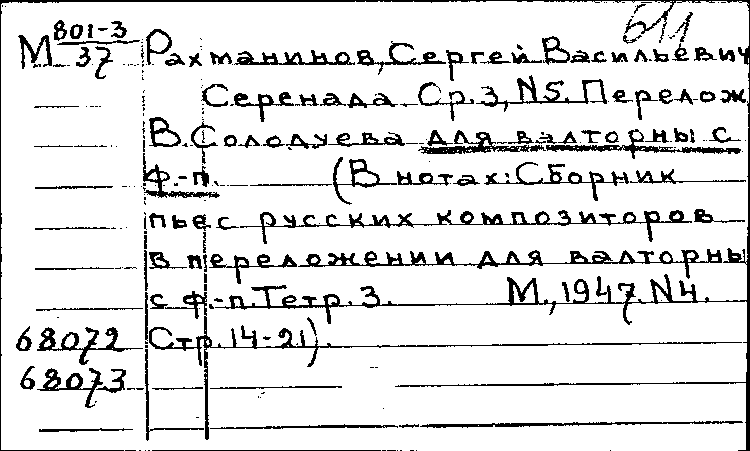 611
М 801-3/37 Рахманинов, Сергей Васильевич
Серенада. Ор.3, N5. Перелож
В. Солодуева для валторны с
ф.-п. (В нотах: Сборник
пьес русских композиторов
в переложении для валторны
с ф.-п. Тетр. 3. М., 1947. N4.
68072 Стр. 14-21).
68073